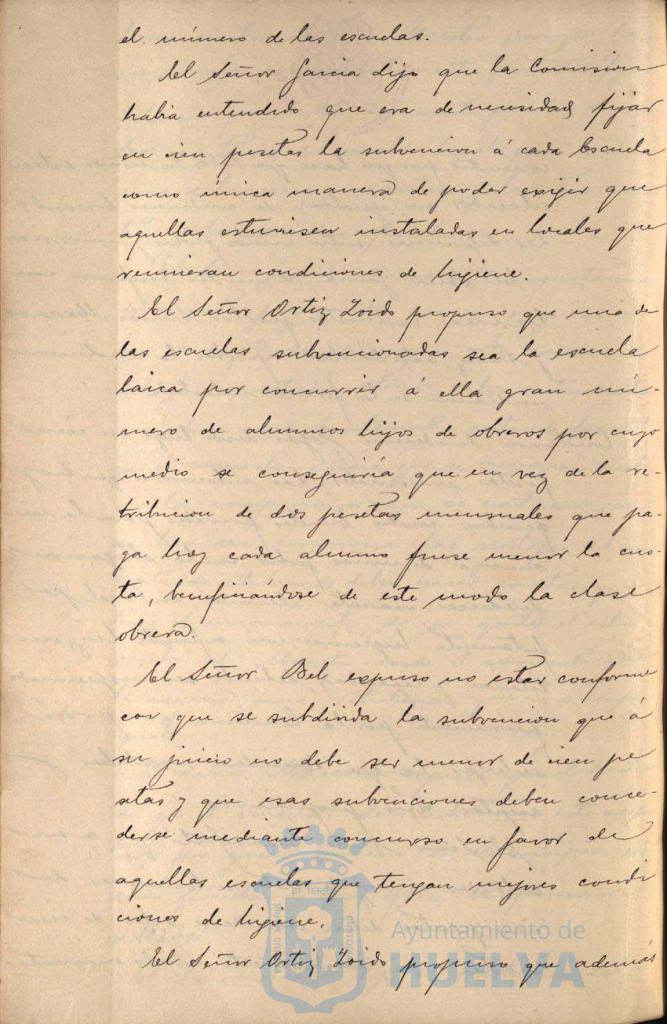 el número de las escuelas.
El Señor Garcia dijo que la Comision
habia entendido que era de necesidad fijar
en cien pesetas la subvencion á cada Escuela
como única manera de poder exigir que
aquellas estuviesen instaladas en locales que
reunieran condiciones de higiene.
El Señor Ortiz Zoido propuso que una de
las escuelas subvencionadas sea la escuela
laica por concurrir á ella gran nú-
mero de alumnos hijos de obreros por cuyo
medio se conseguiria que en vez de la re-
tribucion de dos pesetas mensuales que pa-
ga hoy cada alumno fuese menor la cuo-
ta, beneficiándose de este modo la clase
obrera.
El Señor Bel expuso no estar conforme
con que se subdivida la subvencion que á
su juicio no debe ser menor de cien pe
setas y que esas subvenciones deben conce-
derse mediante concurso en favor de
aquellas escuelas que tengan mejores condi
ciones de higiene.
El Señor Ortiz Zoido propuso que además
Ayuntamiento de
HUELVA